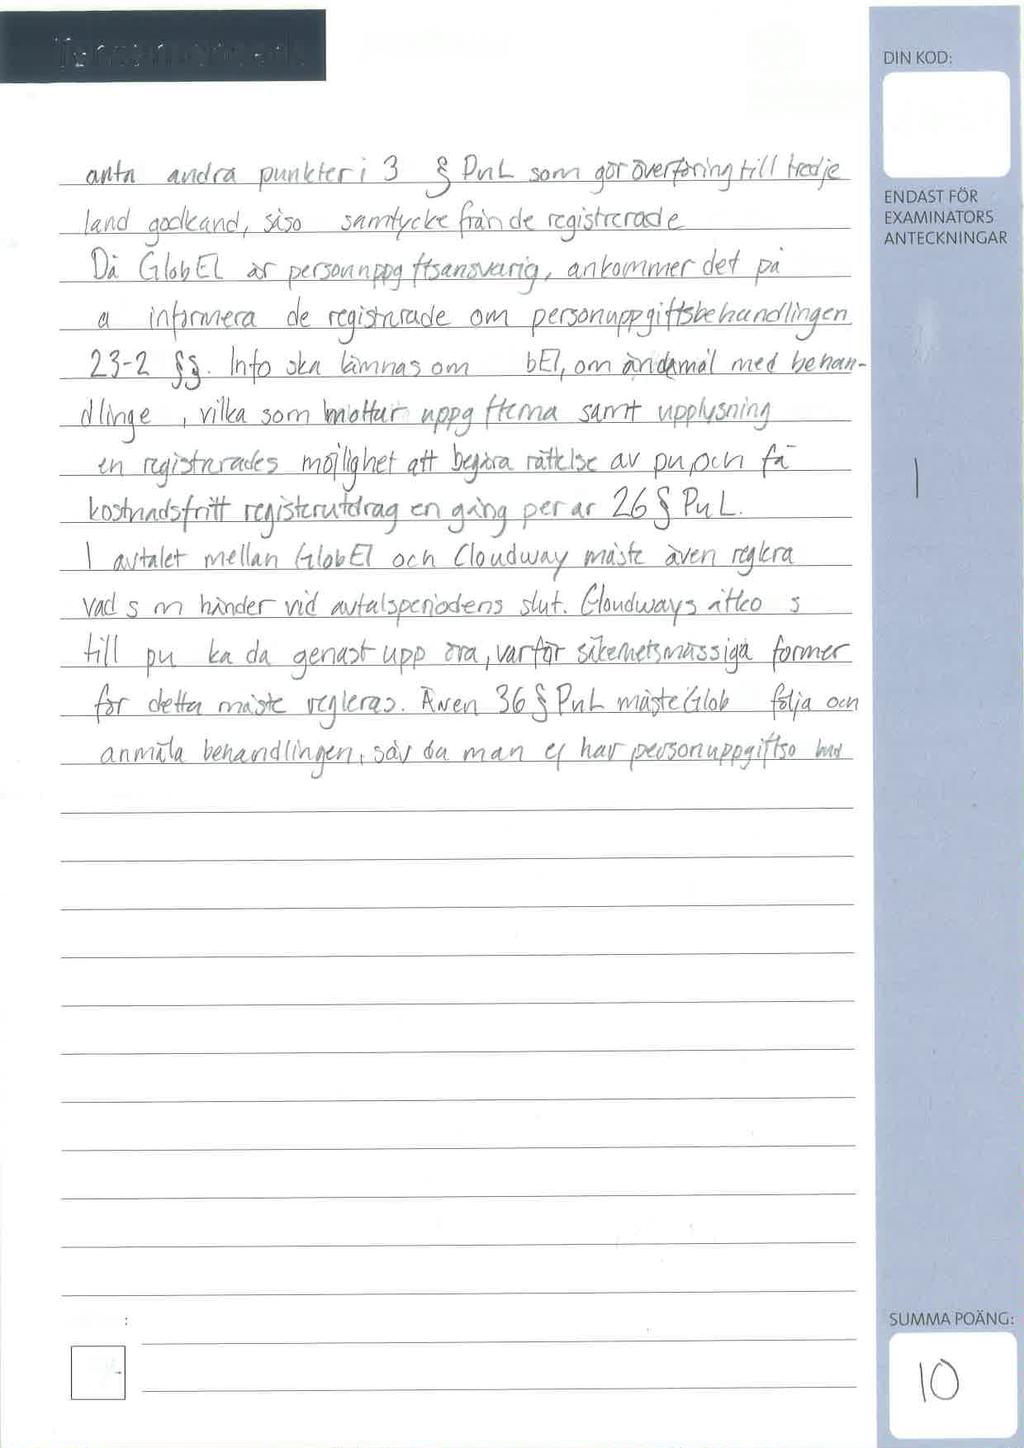 DIN KOD:
andra punkter i 3 § PuL som gör överföring till tredje
land godkänd, såso samtycke från de registrerade
ENDAST FÖR
EXAMINATORS
ANTECKNINGAR
Då GlobEl är personuppg ftsansvarig, ankommer det på
informera de registrerade om personuppgiftsbehandlingen
23-2 §§. Info ska lämnas om bEl, om ändamål med behan-
dlinge , vilka som mottar uppg fterna samt upplysning
en registrerades möjlighet att begära rättelse av pu och få
1
kostnadsfritt registerutdrag en gång per år 26 § PuL.
I avtalet mellan GlobEl och Cloudway måste även reglera
vad s m händer vid avtalsperiodens slut. Cloudways
till pu genast upp öra, varför säkerhetsmässiga former
för detta måste regleras. Även 36 § PuL måste Glob följa och
anmäla behandlingen, man ej har personuppgiftso
:
SUMMA POÄNG:
10